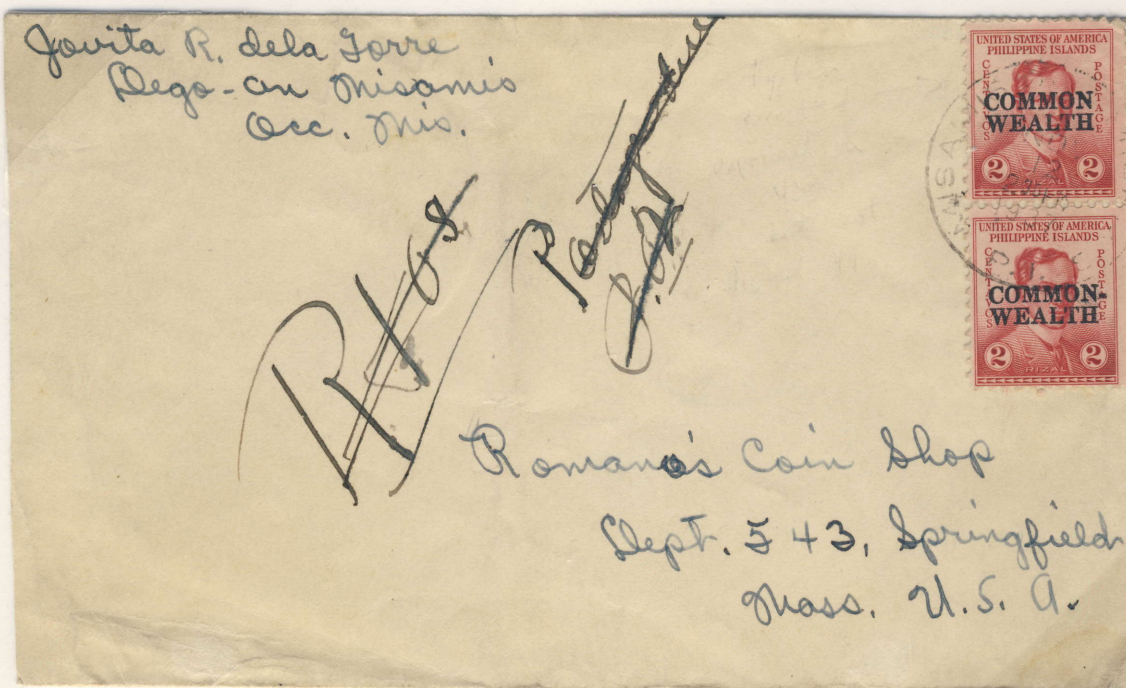 Jovita R. dela Torre
Dego-on Misamis
Occ. Mis.
UNITED STATES OF AMERICA
PHILIPPINE ISLANDS
CENTAVOS
POSTAGE
COMMON
WEALTH
2 RIZAL 2
UNITED STATES OF AMERICA
PHILIPPINE ISLANDS
CENTAVOS
POSTAGE
COMMON-
WEALTH
2 RIZAL 2
Romano's Coin Shop
Dept. 543, Springfield
Mass. U.S.A.